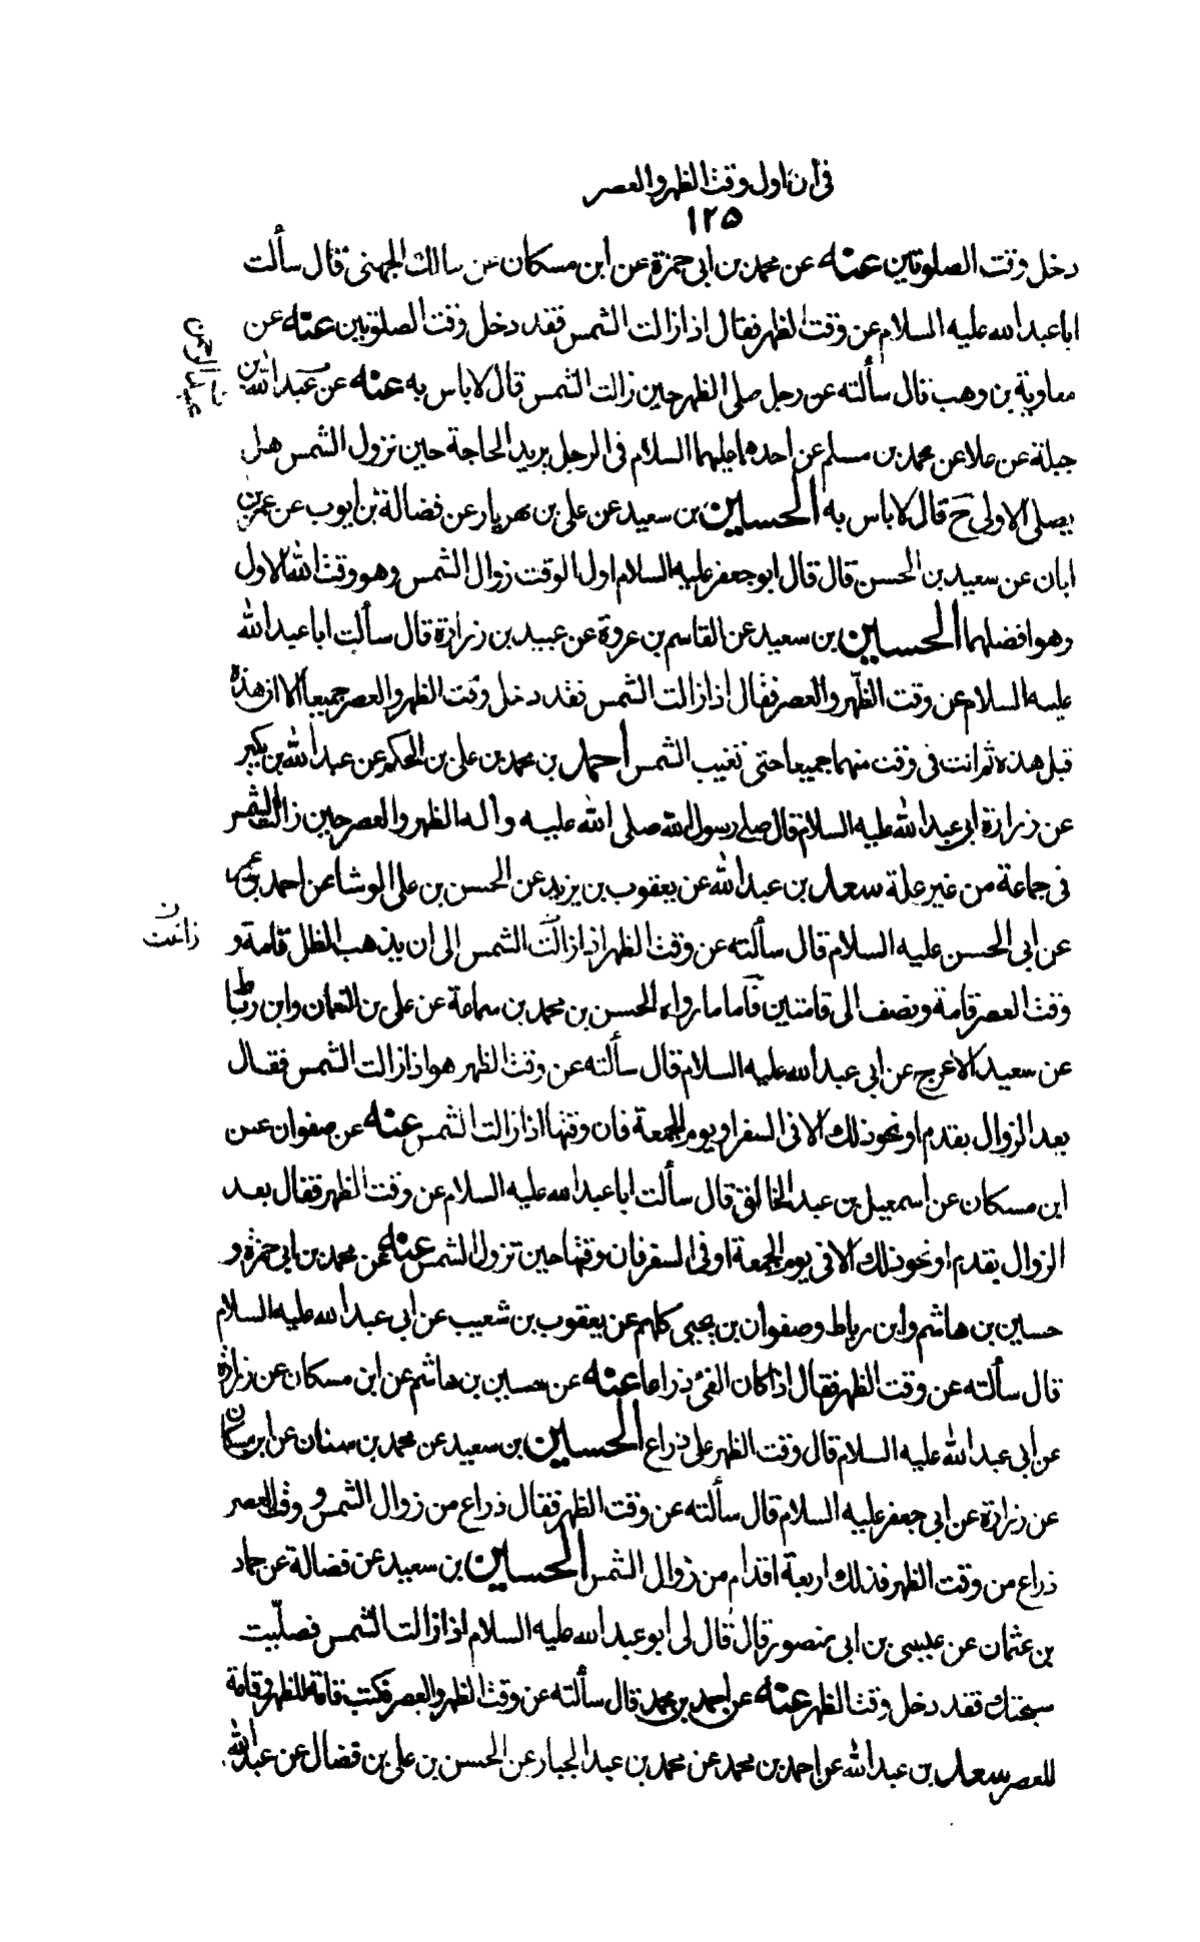 فى ان اول وقت الظهر والعصر
١٢٥
دخل وقت الصلوتين عنه عن محمد بن ابى حمزة عن ابن مسكان عن مالك الجهنى قال سألت
ابا عبد الله عليه السلام عن وقت الظهر فقال اذا زالت الشمس فقد دخل وقت الصلوتين عنه عن
معاوية بن وهب قال سألته عن رجل صلى الظهر حين زالت الشمس قال لا باس به عنه عن عبد الله بن
عبد الرحمن
جبلة عن علا عن محمد بن مسلم عن احدهما عليهما السلام فى الرجل يريد الحاجة حين تزول الشمس هل
يصلى الاولى ح قال لا باس به الحسين بن سعيد عن على بن مهريار عن فضالة بن ايوب عن عمر بن
ابان عن سعيد بن الحسن قال قال ابو جعفر عليه السلام اول الوقت زوال الشمس وهو وقت الله الاول
وهو افضلهما الحسين بن سعيد عن القاسم بن عروة عن عبيد بن زرارة قال سألت ابا عبد الله
عليه السلام عن وقت الظهر والعصر فقال اذا زالت الشمس فقد دخل وقت الظهر والعصر جميعا الا ان هذه
قبل هذه ثم انت فى وقت منهما جميعا حتى تغيب الشمس احمد بن محمد بن على بن الحكم عن عبد الله بن بكير
عن زرارة ابى عبد الله عليه السلام قال صلى رسول الله صلى الله عليه واله الظهر والعصر حين زالت الشمس
فى جماعة من غير علة سعد بن عبد الله عن يعقوب بن يزيد عن الحسن بن على الوشا عن احمد بن عمر
عن ابى الحسن عليه السلام قال سألته عن وقت الظهر اذا زالت الشمس الى ان يذهب الظل قامة و
زاغت ن
وقت العصر قامة ونصف الى قامتين فاما ما رواه الحسن بن محمد بن سماعة عن على بن النعمان وابن رباط
عن سعيد الاعرج عن ابى عبد الله عليه السلام قال سألته عن وقت الظهر هو اذا زالت الشمس فقال
بعد الزوال بقدم او نحو ذلك الا فى السفر او يوم الجمعة فان وقتها اذا زالت الشمس عنه عن صفوان عن
ابن مسكان عن اسمعيل بن عبد الخالق قال سألت ابا عبد الله عليه السلام عن وقت الظهر فقال بعد
الزوال بقدم او نحو ذلك الا فى يوم الجمعة او فى السفر فان وقتها حين تزول الشمس عنه عن محمد بن ابى حمزة و
حسين بن هاشم وابن رباط وصفوان بن يحيى كلهم عن يعقوب بن شعيب عن ابى عبد الله عليه السلام
قال سألته عن وقت الظهر فقال اذا كان الفئ ذراعا عنه عن حسين بن هاشم عن ابن مسكان عن زرارة
عن ابى عبد الله عليه السلام قال وقت الظهر على ذراع الحسين بن سعيد عن محمد بن سنان عن ابن مسكان
عن زرارة عن ابى جعفر عليه السلام قال سألته عن وقت الظهر فقال ذراع من زوال الشمس و وقت العصر
ذراع من وقت الظهر فذلك اربعة اقدام من زوال الشمس الحسين بن سعيد عن فضالة عن حماد
بن عثمان عن عيسى بن ابى منصور قال قال لى ابو عبد الله عليه السلام اذا زالت الشمس فصليت
سبحتك فقد دخل وقت الظهر عنه عن احمد بن محمد قال سألته عن وقت الظهر والعصر فكتب قامة للظهر وقامة
للعصر سعد بن عبد الله عن احمد بن محمد عن محمد بن عبد الجبار عن الحسن بن على بن فضال عن عبد الله